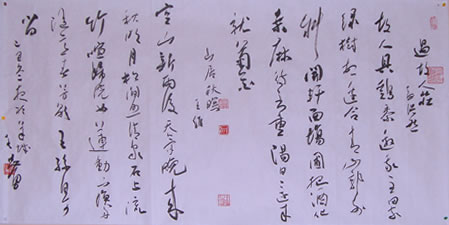 過故莊
孟浩然
故人具鷄黍邀我至田家
緑樹村邊合青山郭外
斜開軒面場圃把酒話
桑麻待到重陽日還來
就菊花
山居秋暝
王維
空山新雨後天氣晚來
秋明月松間照清泉石上流
竹喧歸浣女蓮動下漁舟
隨意春芳歇王孫自可
留